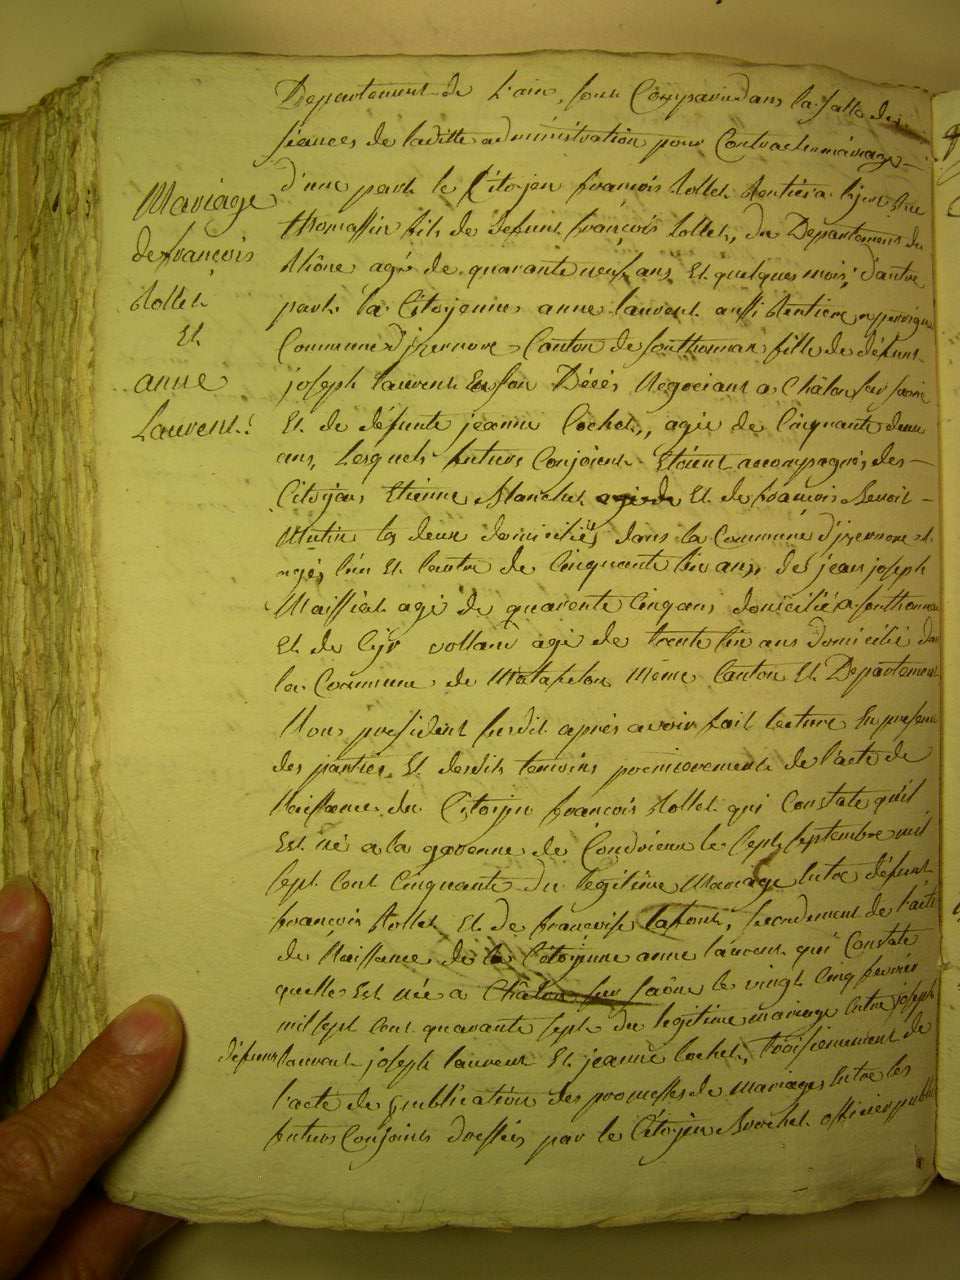 Departement de L'ain, sont Comparu dans la salle des
séances de laditte administration pour Contracter mariage
Mariage
de françois
Rollet
Et
anne
Laurent.
d'une part le Citoyen françois Rollet Rentier a lyon Rue
thomassin fils de defunt françois Rollet, du Departement du
Rhône agé de quarante neuf ans Et quelques mois; d'autre
part la Citoyenne anne laurent aussi Rentiere a
Commune d'izernore Canton de sonthonnax fille de défunt
joseph laurent En son Décés Négociant a Châlon sur saone
Et de défunte jeanne Cochet, agée de Cinquante deux
ans, Lesquels futurs Conjoients Etoient accompagnés des
Citoyens Etienne Blanchet agé de Et de francois Benoit
Mutin les deux domiciliés dans la Commune d'izernore et
agés l'un Et l'autre de Cinquante six ans, de jean joseph
Maissiat agé de quarente Cinq ans domicilié a sonthonnax
Et de Cyr vollant agé de trente six ans domicilié dans
la Commune de Matafelon Même Canton Et Departement
Nous president susdit après avoir fait lecture En presence
des parties Et desdits temoins premierement de l'acte de
Naissance du Citoyen françois Rollet qui Constate qu'il
Est né a la garenne de Condrieux le sept septembre mil
sept cent cinquante du légitime Mariage Entre défunt
françois Rollet Et de françoise lafont, secondement de l'acte
de Naissance de la Citoyenne anne laurent qui Constate
quelle Est née a Châlon sur saône le vingt cinq fevrier
mil sept cent quarante sept du legitime mariage Entre joseph
défunt laurent joseph laurent Et jeanne Cochet, troisiemement de
l'acte de publication des promesses de mariages Entre les
futurs Conjoints dressés par le Citoyen Brochet officier public